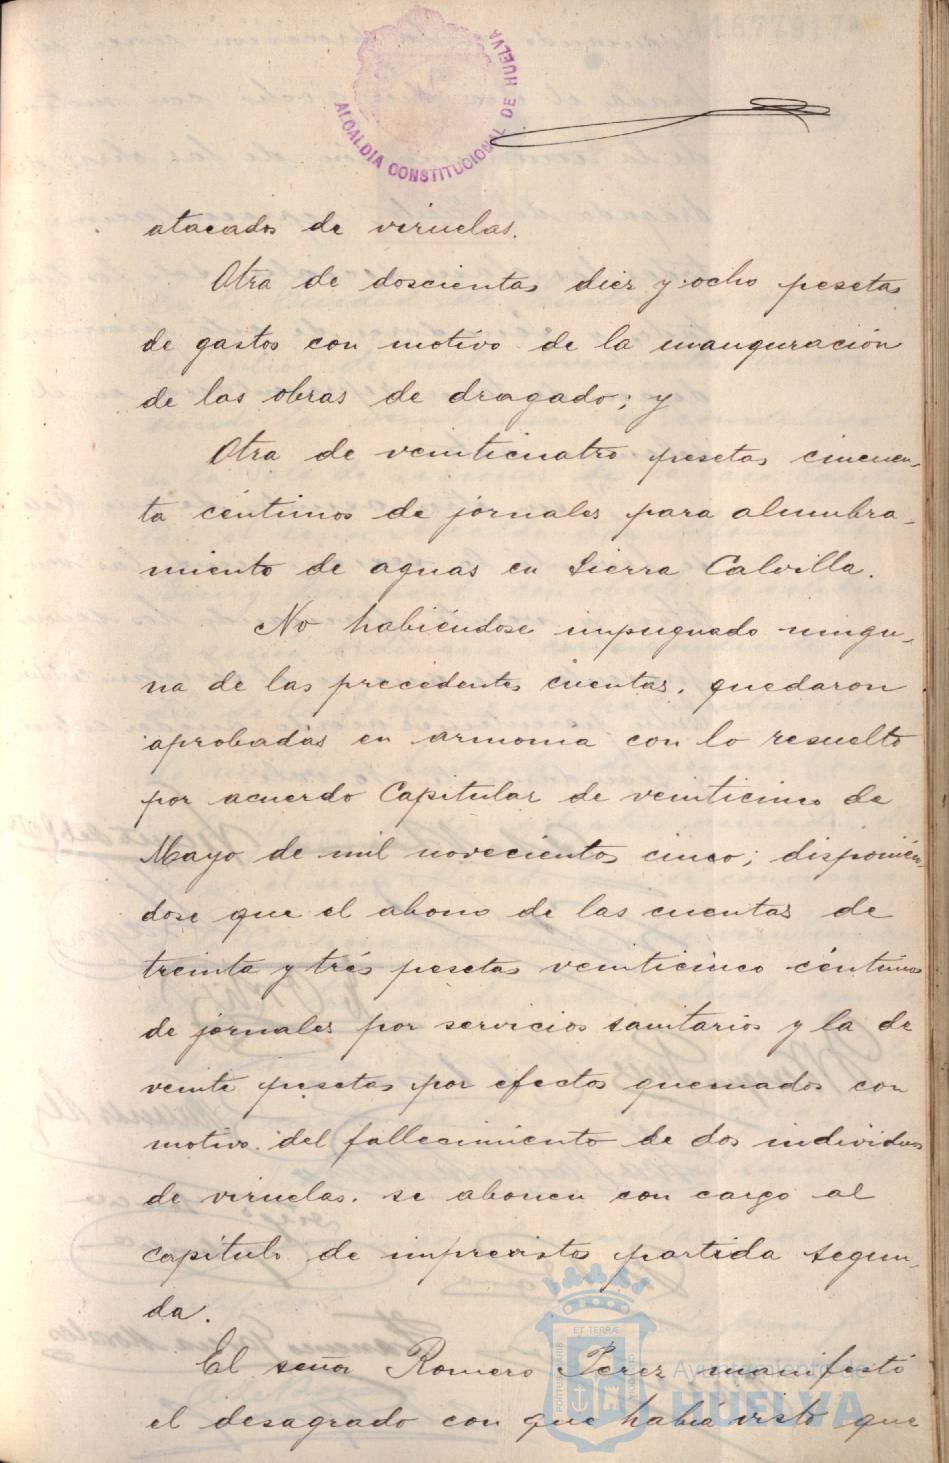 ALCALDIA CONSTITUCIONAL DE HUELVA
atacados de viruelas.
Otra de doscientas diez y ocho pesetas
de gastos con motivo de la inauguración
de las obras de dragado; y
Otra de veinticuatro pesetas cincuen-
ta céntimos de jornales para alumbra-
miento de aguas en Sierra Calvilla.
No habiéndose impugnado ningu-
na de las precedentes cuentas, quedaron
aprobadas en armonia con lo resuelto
por acuerdo Capitular de veinticinco de
Mayo de mil novecientos cinco; disponién-
dose que el abono de las cuentas de
treinta y trés pesetas veinticinco céntimos
de jornales por servicios sanitarios y la de
veinte pesetas por efectos quemados con
motivo del fallecimiento de dos individuos
de viruelas, se abonen con cargo al
capítulo de imprevistos partida segun-
da.
El señor Romero Perez manifestó
el desagrado con que había visto que
ET TERRÆ
Ayuntamiento de
HUELVA